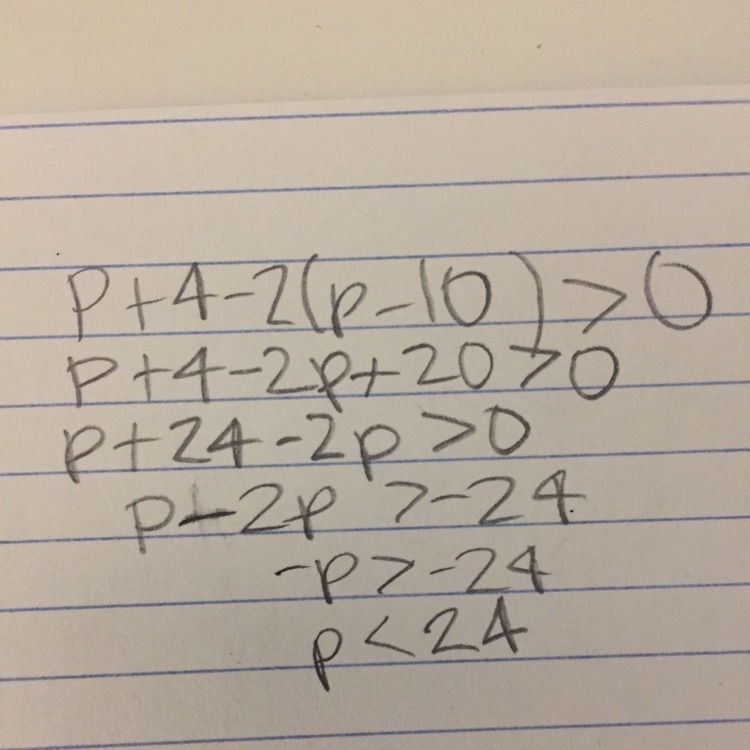 p+4-2(p-10)>0
p+4-2p+20>0
p+24-2p>0
p-2p>-24
-p>-24
p<24